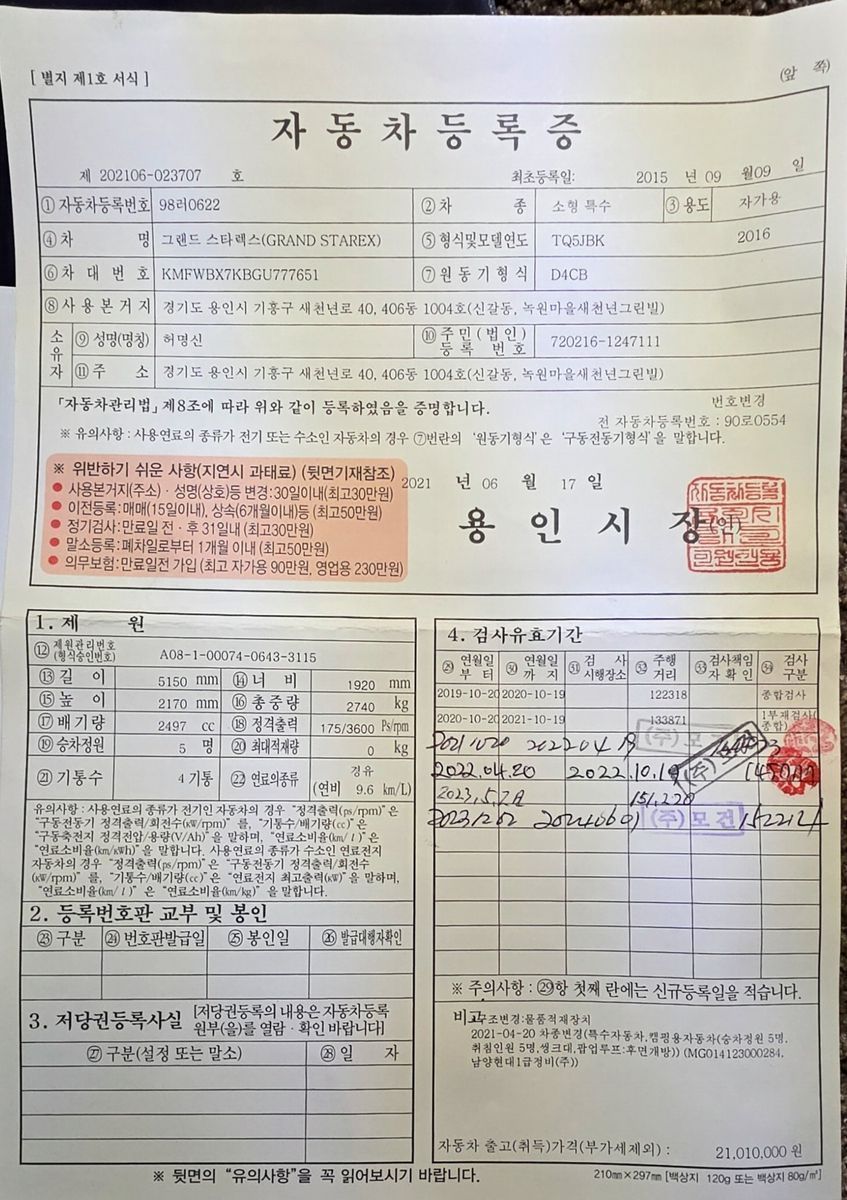 [ 별지 제1호 서식 ]
(앞 쪽)
자 동 차 등 록 증
제 202106-023707 호
최초등록일: 2015 년 09 월09 일
① 자동차등록번호 98러0622 ② 차 종 소형 특수 ③ 용도 자가용
④ 차 명 그랜드 스타렉스(GRAND STAREX) ⑤ 형식및모델연도 TQ5JBK 2016
⑥ 차 대 번 호 KMFWBX7KBGU777651 ⑦ 원 동 기 형 식 D4CB
⑧ 사 용 본 거 지 경기도 용인시 기흥구 새천년로 40, 406동 1004호(신갈동, 녹원마을새천년그린빌)
소유자 ⑨ 성명(명칭) 허명신 ⑩ 주 민 ( 법 인 ) 등 록 번 호 720216-1247111
⑪ 주 소 경기도 용인시 기흥구 새천년로 40, 406동 1004호(신갈동, 녹원마을새천년그린빌)
「자동차관리법」제8조에 따라 위와 같이 등록하였음을 증명합니다.
번호변경
전 자동차등록번호 : 90로0554
※ 유의사항 : 사용연료의 종류가 전기 또는 수소인 자동차의 경우 ⑦번란의 '원동기형식'은 '구동전동기형식'을 말합니다.
※ 위반하기 쉬운 사항(지연시 과태료) (뒷면기재참조)
● 사용본거지(주소) · 성명(상호)등 변경:30일이내(최고30만원)
● 이전등록:매매(15일이내), 상속(6개월이내)등 (최고50만원)
● 정기검사:만료일 전 · 후 31일내 (최고30만원)
● 말소등록:폐차일로부터 1개월 이내 (최고50만원)
● 의무보험:만료일전 가입 (최고 자가용 90만원, 영업용 230만원)
2021 년 06 월 17 일
용 인 시 장 (인)
1. 제 원
⑫ 제원관리번호 (형식승인번호) A08-1-00074-0643-3115
⑬ 길 이 5150 mm ⑭ 너 비 1920 mm
⑮ 높 이 2170 mm ⑯ 총 중 량 2740 kg
⑰ 배 기 량 2497 cc ⑱ 정격출력 175/3600 Ps/rpm
⑲ 승차정원 5 명 ⑳ 최대적재량 0 kg
㉑ 기 통 수 4 기통 ㉒ 연료의종류 경유 (연비 9.6 km/L)
유의사항 : 사용연료의 종류가 전기인 자동차의 경우 "정격출력(ps/rpm)"은
"구동전동기 정격출력/회전수(kW/rpm)" 를, "기통수/배기량(cc)"은
"구동축전지 정격전압/용량(V/Ah)"을 말하며, "연료소비율(km/ l )"은
"연료소비율(km/kWh)"을 말합니다. 사용연료의 종류가 수소인 연료전지
자동차의 경우 "정격출력(ps/rpm)"은 "구동전동기 정격출력/회전수
(kW/rpm)" 를, "기통수/배기량(cc)"은 "연료전지 최고출력(kW)"을 말하며,
"연료소비율(km/ l )" 은 "연료소비율(km/kg)" 을 말합니다.
2. 등록번호판 교부 및 봉인
㉓ 구분 ㉔ 번호판발급일 ㉕ 봉인일 ㉖ 발급대행자확인
3. 저당권등록사실 [저당권등록의 내용은 자동차등록
원부(을)를 열람 · 확인 바랍니다]
㉗ 구분(설정 또는 말소) ㉘ 일 자
4. 검사유효기간
㉙ 연월일 부 터 ㉚ 연월일 까 지 ㉛ 검 사 시행장소 ㉜ 주행 거리 ㉝ 검사책임 자 확 인 ㉞ 검사 구분
2019-10-20 2020-10-19 122318 종합검사
2020-10-20 2021-10-19 133871 1부재검사(종합)
20211020 20220419 (주) 모
2022.04.20 2022.10.19 (주)
2023.5.2일 151,220
20231202 20240601 (주) 모건
※ 주의사항 : ㉙항 첫째 란에는 신규등록일을 적습니다.
비고 구조변경:물품적재장치
2021-04-20 차종변경(특수자동차,캠핑용자동차(승차정원 5명,
취침인원 5명,씽크대,팝업루프:후면개방)) (MG014123000284,
남양현대1급정비(주))
자동차 출고(취득)가격(부가세제외) : 21,010,000 원
※ 뒷면의 "유의사항"을 꼭 읽어보시기 바랍니다.
210㎜×297㎜ [백상지 120g 또는 백상지 80g/㎡]